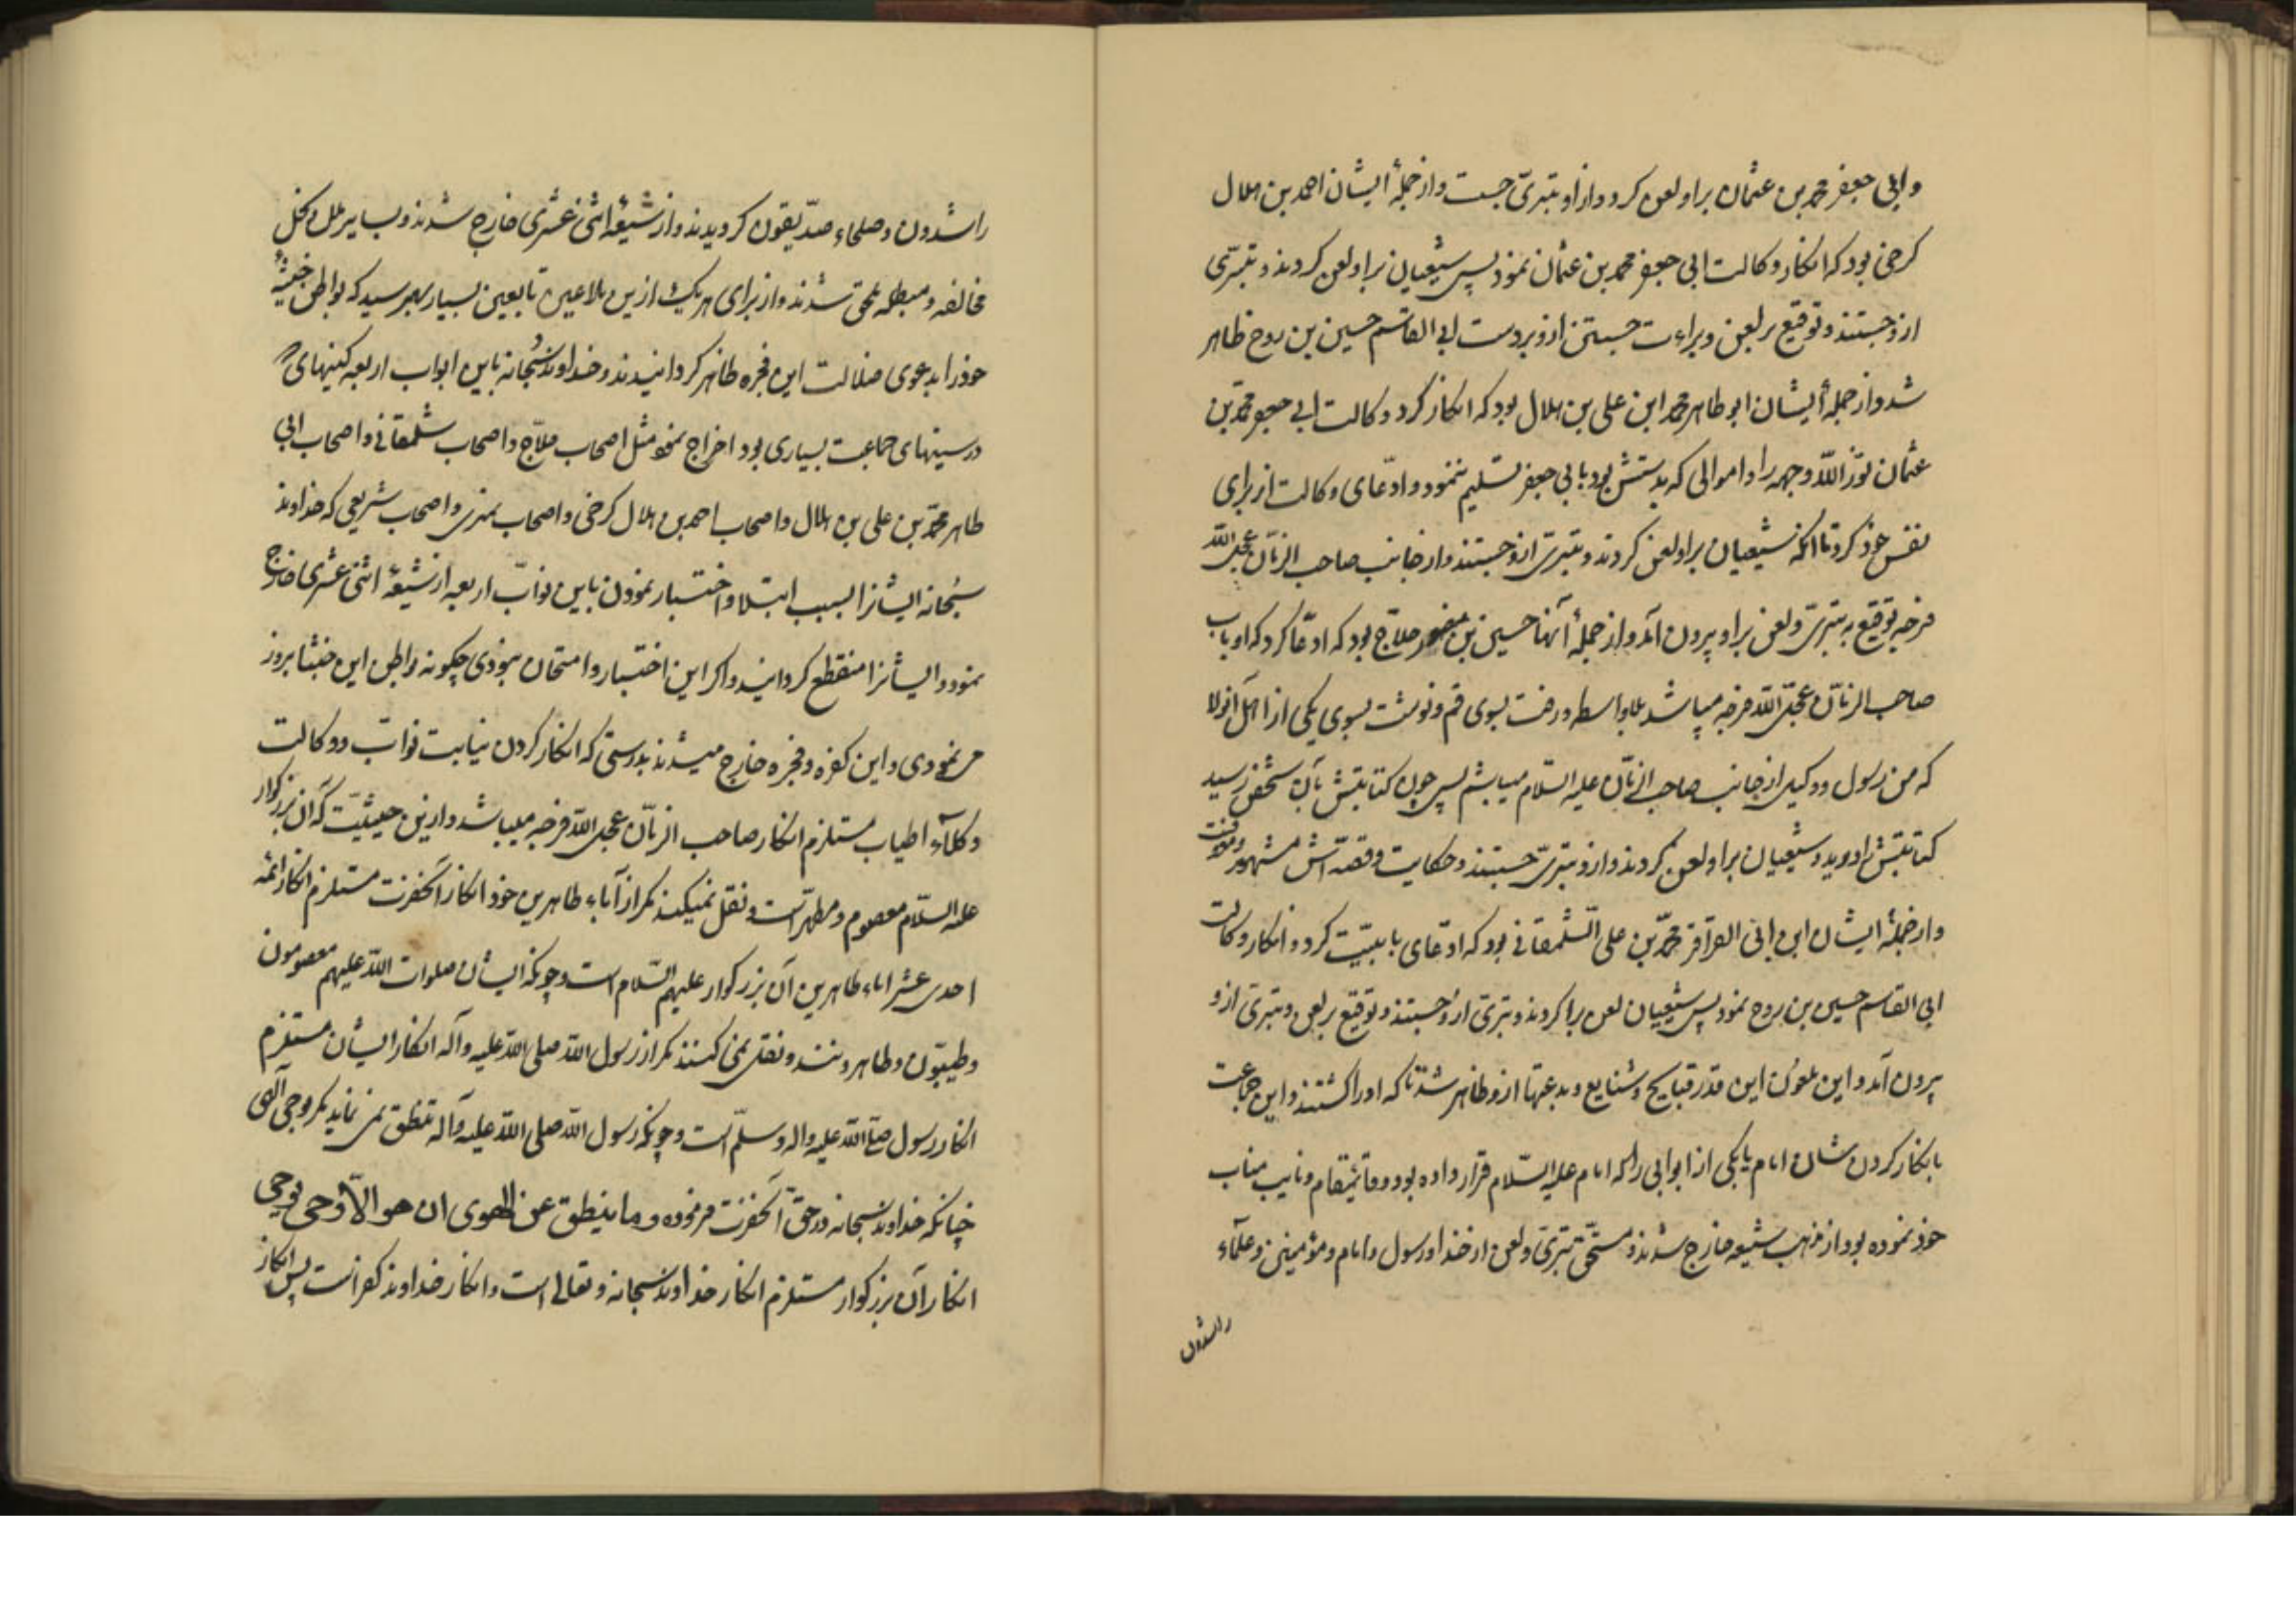 وابی جعفر محمد بن عثمان براو لعن کرد و از او تبرّی جست و از جملهٔ ایشان احمد بن هلال
کرخی بود که انکار وکالت ابی جعفر محمد بن عثمان نمود پس شیعیان براو لعن کردند و تبرّی
ازو جستند و توقیع بر لعن و براءت جستن ازو بر دست ابی القاسم حسین بن روح ظاهر
شد و از جملهٔ ایشان ابو طاهر محمد ابن علی بن هلال بود که انکار کرد وکالت ابی جعفر محمد بن
عثمان نوّر اللّه وجهه را و اموالی که بدستش بود بابی جعفر تسلیم ننمود و ادّعای وکالت از برای
نفس خود کرد تا آنکه شیعیان براو لعن کردند و تبرّی ازو جستند و از جانب صاحب الزمان عجل اللّه
فرجه توقیع به تبرّی و لعن براو بیرون آمد و از جملهٔ آنها حسین بن منصور حلّاج بود که ادّعا کرد که او باب
صاحب الزمان عجّل اللّه فرجه میباشد بلا واسطه و رفت بسوی قم و نوشت بسوی یکی از اهل آنولا
که من رسول و وکیل از جانب صاحب الزمان علیه السّلام میباشم پس چون کتابتش بآن شخص رسید
کتابتش را درید و شیعیان براو لعن کردند و ازو تبرّی جستند و حکایت و قصّه اش مشهور و معروفست
و از جملهٔ ایشان ابن ابی العزاقر محمّد بن علی الشّلمغانی بود که ادّعای بابیّیت کرد و انکار وکالت
ابی القاسم حسین بن روح نمود پس شیعیان لعن برا کردند و تبرّی ازو جستند و توقیع بر لعن و تبرّی ازو
بیرون آمد و این ملعون این قدر قبایح و شنایع و بدعتها ازو ظاهر شد تا که او را کشتند و این جماعت
بانکار کردن شان امام یا یکی از ابوابی را که امام علیه السّلام قرار داده بود و قائمقام و نایب مناب
خود نموده بود از مذهب شیعه خارج شدند و مستحقّ تبرّی و لعن از خدا و رسول و امام و مؤمنین و علماء
راشدون
راشدون و صلحاء صدّیقون گردیدند و از شیعهٔ اثنی عشری خارج شدند و بسایر ملل و نحل
مخالفه و مبطله ملحق شدند و از برای هر یک ازین ملاعین تابعین بسیار بهم رسید که بواطن خبیثهٔ
خود را بدعوی ضلالت این فجره ظاهر گردانیدند و خداوند سبحانه باین ابواب اربعه کینهای
در سینهای جماعت بسیاری بود اخراج نمود مثل اصحاب حلاّج و اصحاب شلمغانی و اصحاب ابی
طاهر محمّد بن علی بن هلال و اصحاب احمد بن هلال کرخی و اصحاب نمیری و اصحاب شریعی که خداوند
سبحانه ایشانرا بسبب ابتلا و اختبار نمودن باین نوّاب اربعه از شیعهٔ اثنی عشری خارج
نمود و ایشانرا منقطع گردانید و اگر این اختبار و امتحان نبودی چگونه بواطن این خبثا بروز
می نمودی و این کفره و فجره خارج میشدند بدرستی که انکار کردن نیابت نوّاب و وکالت
وکلآء اطیاب مستلزم انکار صاحب الزمان عجل اللّه فرجه میباشد و ازین حیثیّت که آن بزرگوار
علیه السّلام معصوم و مطهّر است و نقل نمیکند مگر از آباء طاهرین خود انکار آنحضرت مستلزم انکار ائمه
احدی عشر اباء طاهرین آن بزرگوار علیهم السّلام است و چونکه ایشان صلوات اللّه علیهم معصومون
و طیبّون و طاهرونند و نقل نمی کنند مگر از رسول اللّه صلی اللّه علیه و آله انکار ایشان مستلزم
انکار رسول صلّی اللّه علیه واله وسلّم است و چونکه رسول اللّه صلی اللّه علیه و آله نطق نمی نماید مگر بوحی الهی
چنانکه خداوند سبحانه در حقّ آنحضرت فرموده وما ینطق عن الهوی ان هو الاّ وحی یوحی
انکار آن بزرگوار مستلزم انکار خداوند سبحانه و تعالی است و انکار خداوند کفر است پس انکار